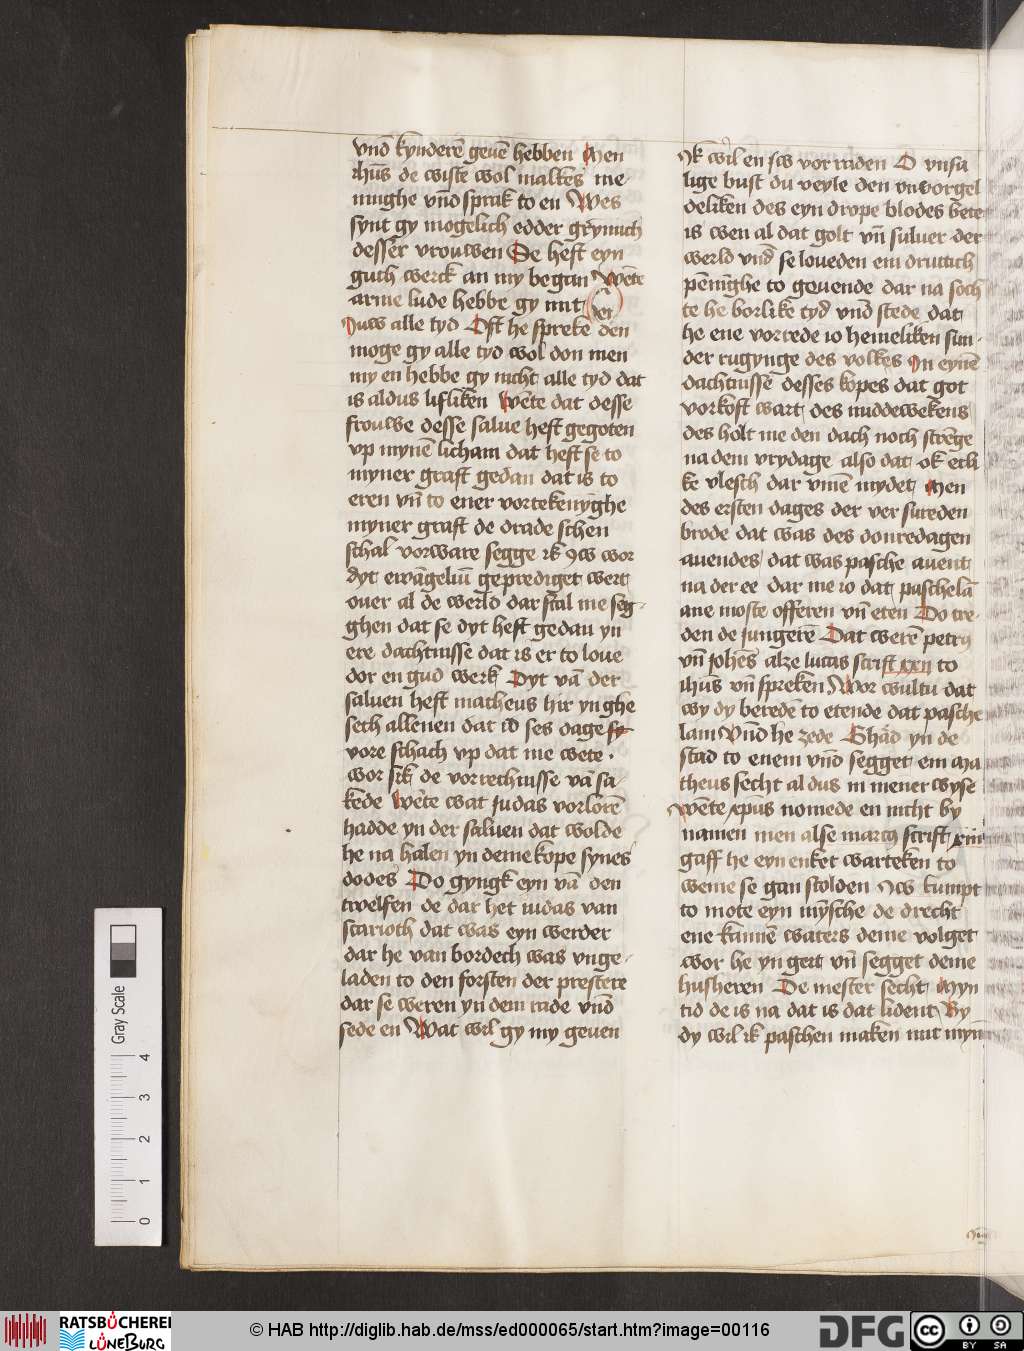 vnd kynderē geuē hebben Men
ihūs de wiste wol malkes me
ninghe vnd sprak to en Wes
synt gy mogelich edder grymich
desser vrouwen De heft eyn
guth werck an my began Wēte
arme lude hebbe gy mit
der
Juw alle tyd Oft he spreke den
moge gy alle tyd wol don men
my en hebbe gy nicht alle tyd dat
is aldus lifliken Wēte dat desse
frouwe desse salue heft gegoten
vp mynē licham dat heft se to
myner graft gedan dat is to
eren vn̄ to ener vortekenȳghe
myner graft de drade schen
schal vorware segge ik yw wor
dyt ewāgeliū geprediget wert
ouer al de werld dar scal me seg
ghen dat se dyt heft gedan yn
ere dachtnisse dat is er to loue
dor en gud werk Dyt vā der
saluen heft matheus hir ynghe
seth allenen dat id ses dage
vore schach vp dat me wete
wor sik de vorrechnisse vā sa
kede Wēte wat judas vorlorē
hadde yn der saluen dat wolde
he na halen yn deme kope synes
dodes Do gyngk eyn vā den
twelfen de dar het iudas van
scarioth dat was eyn werder
dar he van bordech was vnge
laden to den forsten der prestere
dar se weren yn dem rade vnd
sede en Wat wil gy my geuen
Ik wil en jw vor raden O vnsa
lige bust du veyle den vnvorgel
deliken des eyn drope blodes bete
is wen al dat golt vn̄ suluer der
werld vnd se loueden em druttich
pēnīghe to geuende dar na soch
te he borlike tyd vnd stede dat
he ene vorrede io hemeliken sun
der rugynge des volkes In eynē
dachtnisse desses kopes dat got
vorkoft wart des middewekens
des holt me den dach noch strēge
na dem vrydage also dat ok etli
ke vlesch dar vmē mydet Men
des ersten dages der ver sureden
brode dat was des donredagen
auendes dat was pasche auent
na der ee dar me io dat paschelā
ane moste offeren vn̄ eten Do tre
den de jungerē Dat werē petrꝯ
vn̄ johēs alze lucas scrift xxii to
ihūs vn̄ spreken Wor wultu dat
wy dy beredē to etende dat pasche
lam Vnd he zede Ghād yn de
stad to enem vnd segget em Ma
theus secht aldus in mener wyse
Wēte xp̄us nomede en nicht by
namen men alse marcꝯ scrift xiiii
gaff he eyn enket warteken to
weme se gan scolden Yw kumpt
to mote eyn mȳsche de drecht
ene kannē waters deme volget
wor he yn geit vn̄ segget deme
husheren De mester secht Myn
tid de is na dat is dat lident By
dy wil ik paschen maken mit myn
Gray Scale
4
3
2
1
0
RATSBÜCHEREI
LÜNEBURG
© HAB http://diglib.hab.de/mss/ed000065/start.htm?image=00116
DFG
cc
BY SA